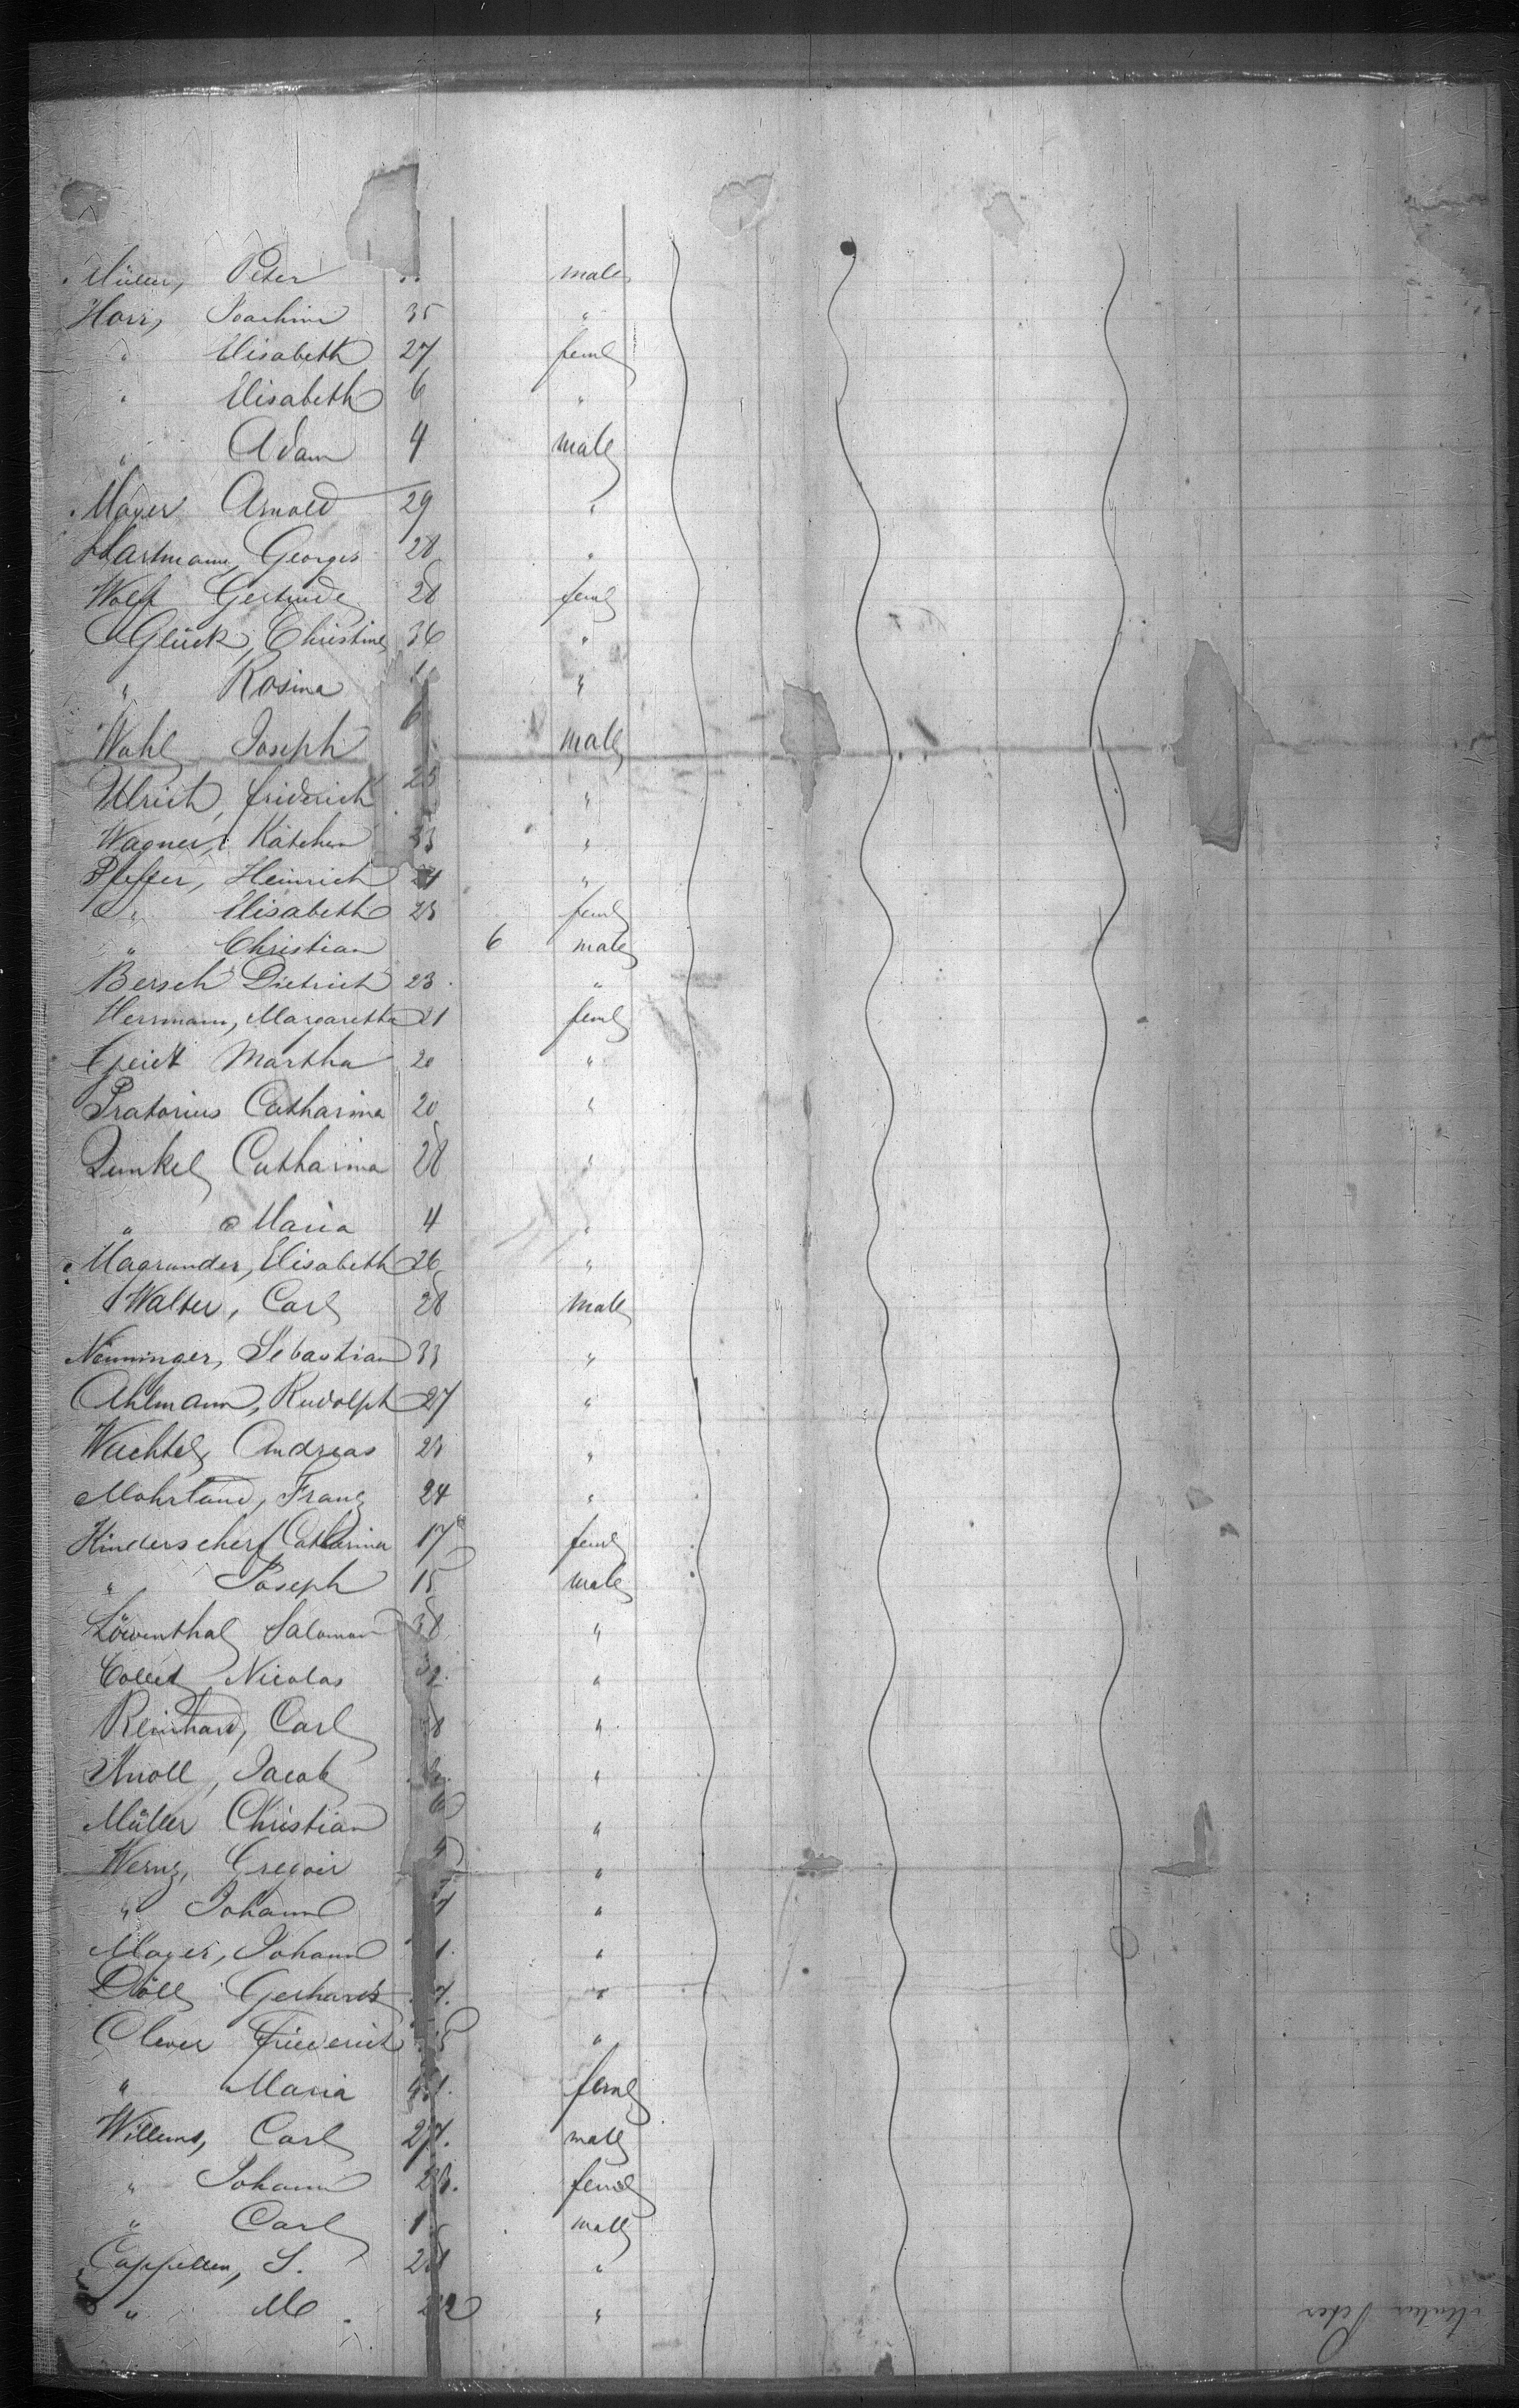 Müller, Peter male
Horr, Joachim 35 "
" Elisabeth 27 feml
" Elisabeth 6 "
" Adam 4 male
Mayer Arnold 29 "
Hartmann, Georges 28 "
Wolf Gertrude 28 feml
Glück, Christine 36 "
" Rosina "
Wahl Joseph male
Ulrich, friderich "
Wagner, Kätchen 33 "
Pfeffer, Heinrich "
" Elisabeth 25 feml
" Christian 6 male
Bersch Dietrich 23. "
Herrmann, Margaretha 21 feml
Martha 20 "
Pratorius Catharina 20 "
Dunkel Catharina 28 "
" Maria 4 "
Magrunder, Elisabeth 26 "
Walter, Carl 28 male
Nenninger, Sebastian 33 "
Ahlmann, Rudolph 27 "
Wachtel Andreas 23 "
Mohrland, Franz 24 "
Kinderscherf Catharina 17 feml
" Joseph 15 male
Löwenthal Salomon 38 "
Collet Nicolas 32. "
Reinhard, Carl "
Knoll, Jacob "
Müller Christian "
Wernz, Gregoir "
" Johann "
Mayer, Johann "
Döll Gerhardt "
Clever Friederich "
" Maria feml
Willems, Carl 27. male
" Johann feml
" Carl 1 male
Cappellen, S. "
" M. "
Muller Peter